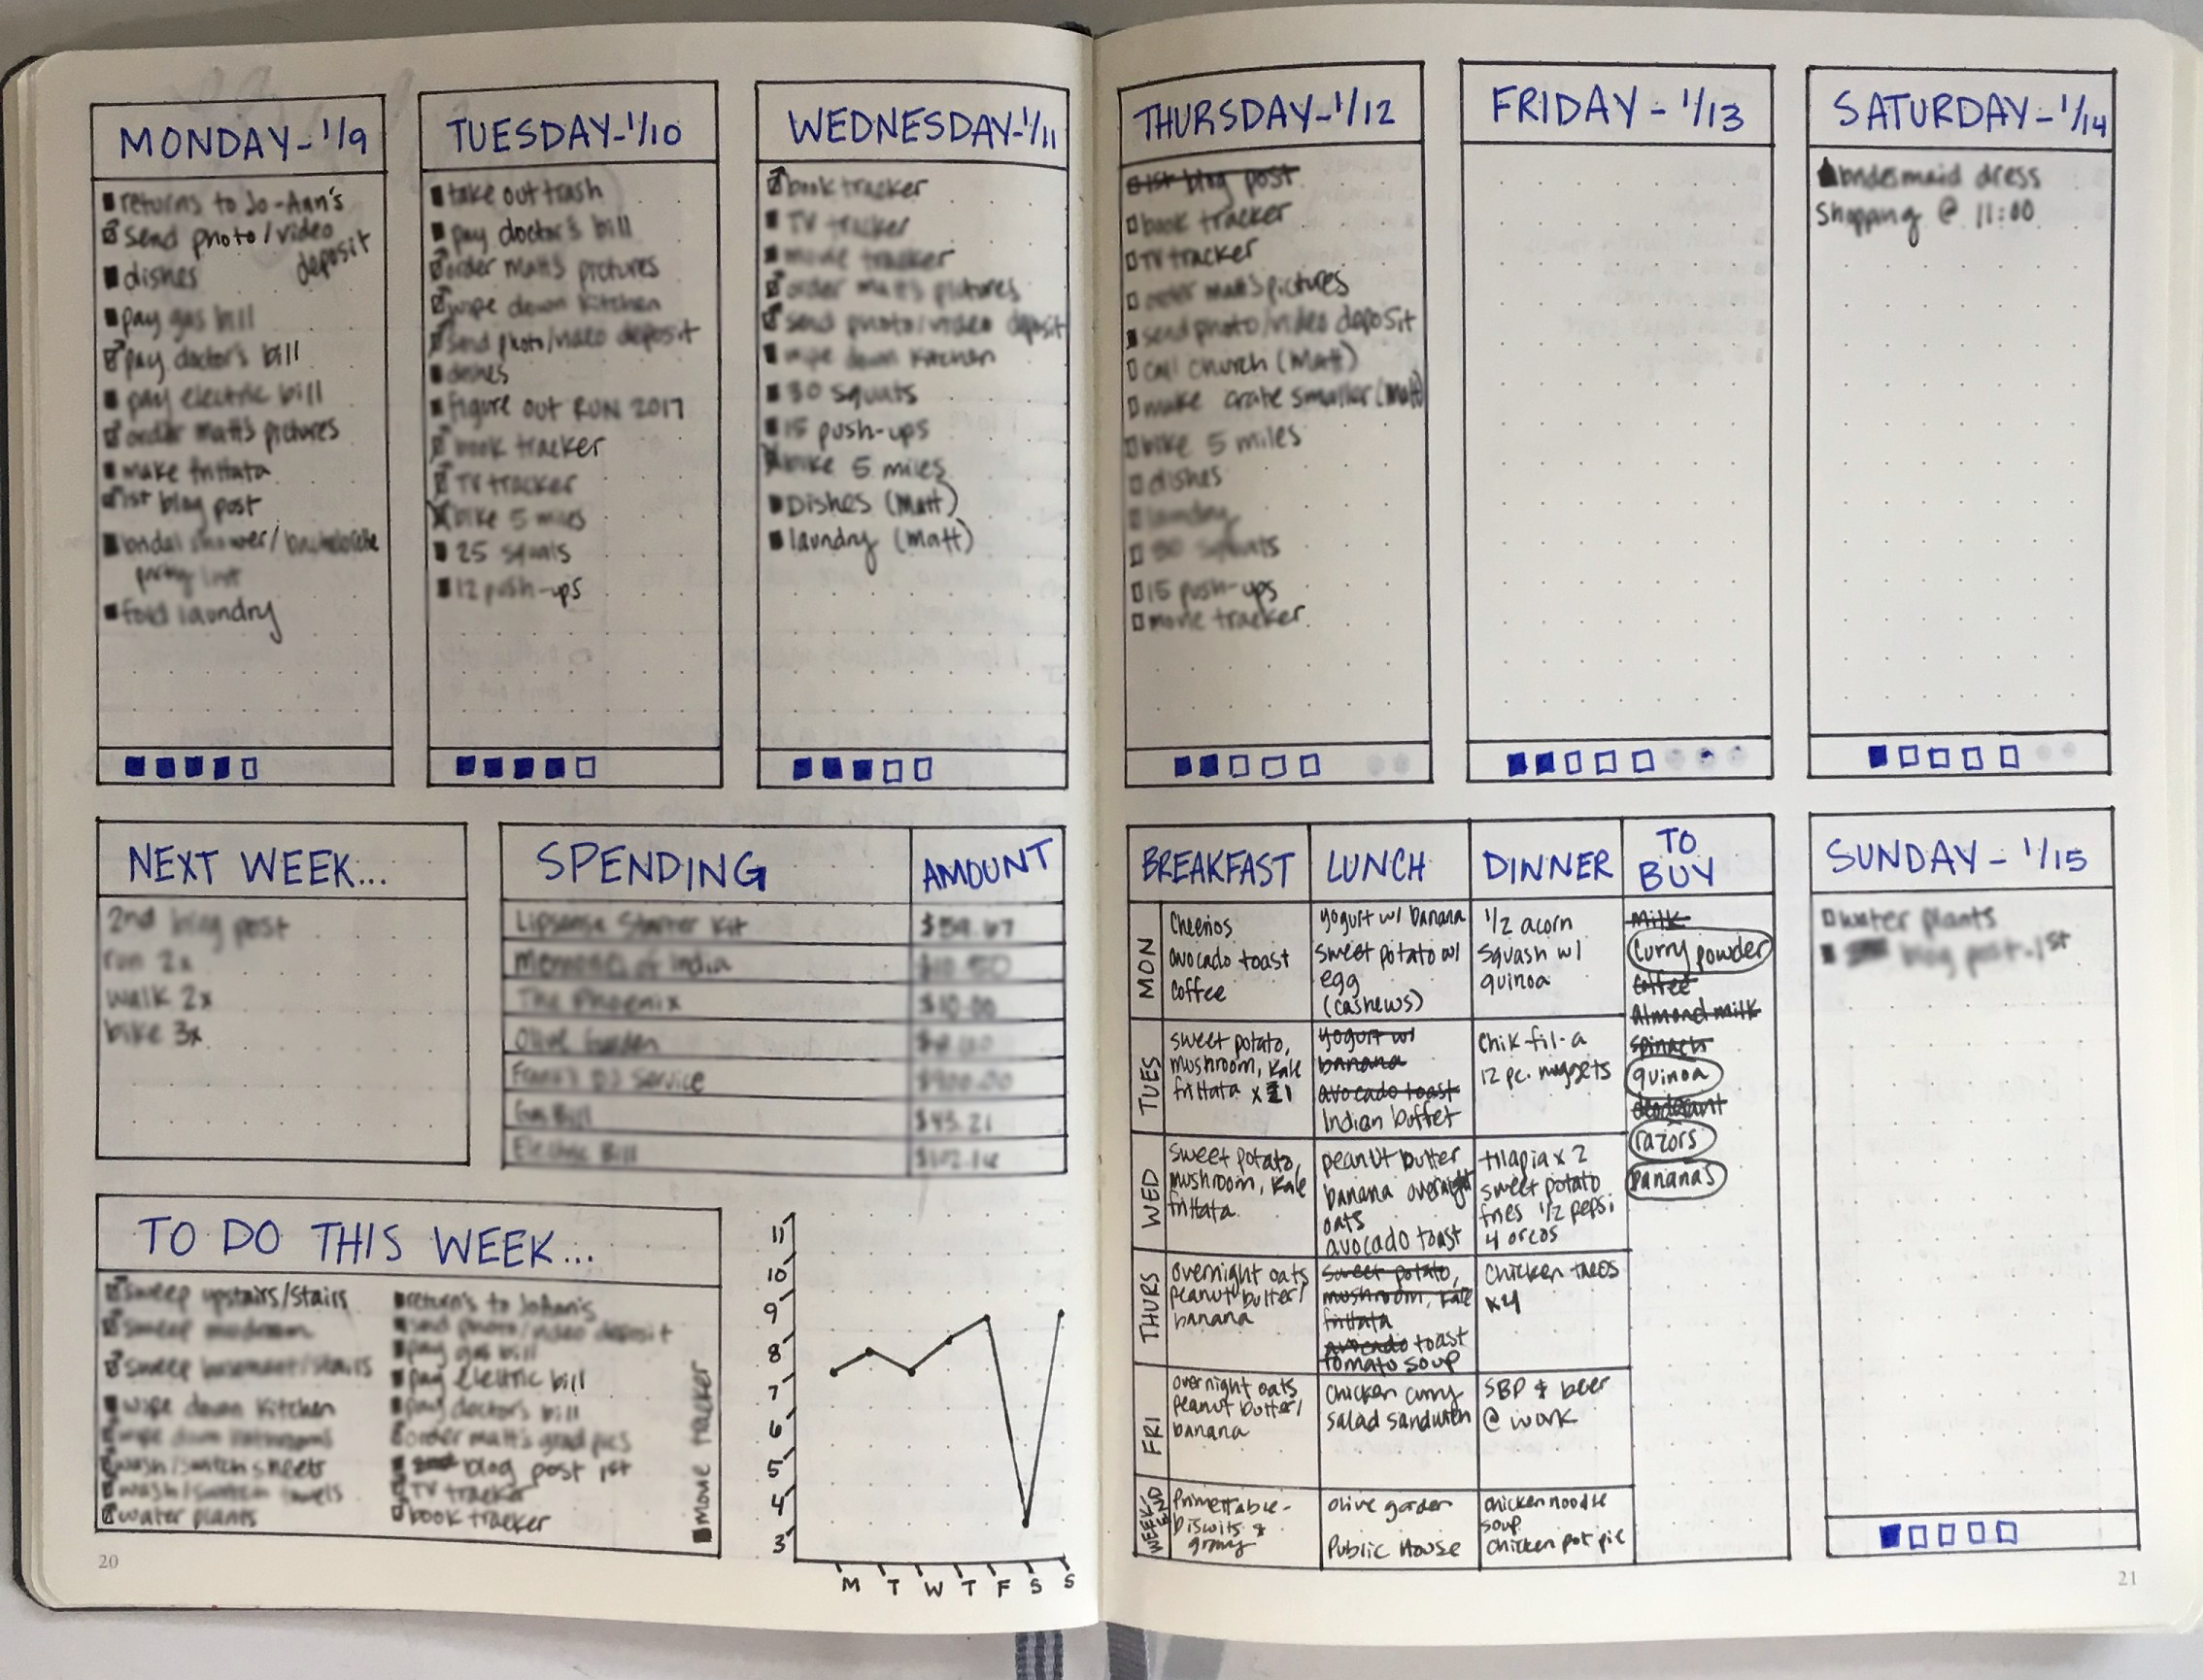 MONDAY - 1/9
returns to Jo-Ann's
send photo/video
deposit
dishes
pay gas bill
pay doctor's bill
pay electric bill
order Matt's pictures
make frittata
1st blog post
bridal shower/bachelorette
party list
fold laundry
TUESDAY - 1/10
take out trash
pay doctor's bill
order Matt's pictures
wipe down kitchen
send photo/video deposit
dishes
figure out RUN 2017
book tracker
TV tracker
bike 5 miles
25 squats
12 push-ups
WEDNESDAY - 1/11
book tracker
TV tracker
movie tracker
order Matt's pictures
send photo/video deposit
wipe down kitchen
30 squats
15 push-ups
bike 5 miles
Dishes (Matt)
laundry (Matt)
THURSDAY - 1/12
1st blog post
book tracker
TV tracker
order Matt's pictures
send photo/video deposit
call church (Matt)
make crate smaller (Matt)
bike 5 miles
dishes
laundry
30 squats
15 push-ups
movie tracker
FRIDAY - 1/13
SATURDAY - 1/14
bridesmaid dress
Shopping @ 11:00
NEXT WEEK...
2nd blog post
run 2x
walk 2x
bike 3x
SPENDING AMOUNT
Lipsense Starter Kit
Memories of India
The Phoenix $10.00
Olive Garden
DJ Service $900.00
Gas Bill $45.21
Electric Bill
TO DO THIS WEEK...
sweep upstairs/stairs
sweep mudroom
sweep basement/stairs
wipe down kitchen
wipe down bathrooms
wash/switch sheets
wash/switch towels
water plants
return's to JoAnn's
send photo/video deposit
pay gas bill
pay electric bill
pay doctor's bill
order Matt's grad pics
blog post 1st
TV tracker
book tracker
movie tracker
11
10
9
8
7
6
5
4
3
M T W T F S S
BREAKFAST LUNCH DINNER TO BUY
MON
Cheerios
avocado toast
Coffee
yogurt w/ banana
sweet potato w/
egg
(cashews)
1/2 acorn
squash w/
quinoa
TUES
sweet potato,
mushroom, kale
frittata x 1
yogurt w/
banana
avocado toast
Indian buffet
Chik-fil-a
12 pc. nuggets
WED
sweet potato,
mushroom, kale
frittata
peanut butter
banana overnight
oats
avocado toast
tilapia x 2
sweet potato
fries 1/2 pepsi
4 oreos
THURS
overnight oats
peanut butter/
banana
sweet potato,
mushroom, kale
frittata
avocado toast
tomato soup
chicken tacos
x4
FRI
overnight oats
peanut butter/
banana
chicken curry
salad sandwich
SBP & beer
@ work
WEEKEND
biscuits &
gravy
olive garden
Public House
chicken noodle
soup
chicken pot pie
milk
curry powder
coffee
Almond milk
spinach
quinoa
deodorant
razors
bananas
SUNDAY - 1/15
water plants
blog post - 1st
20
21